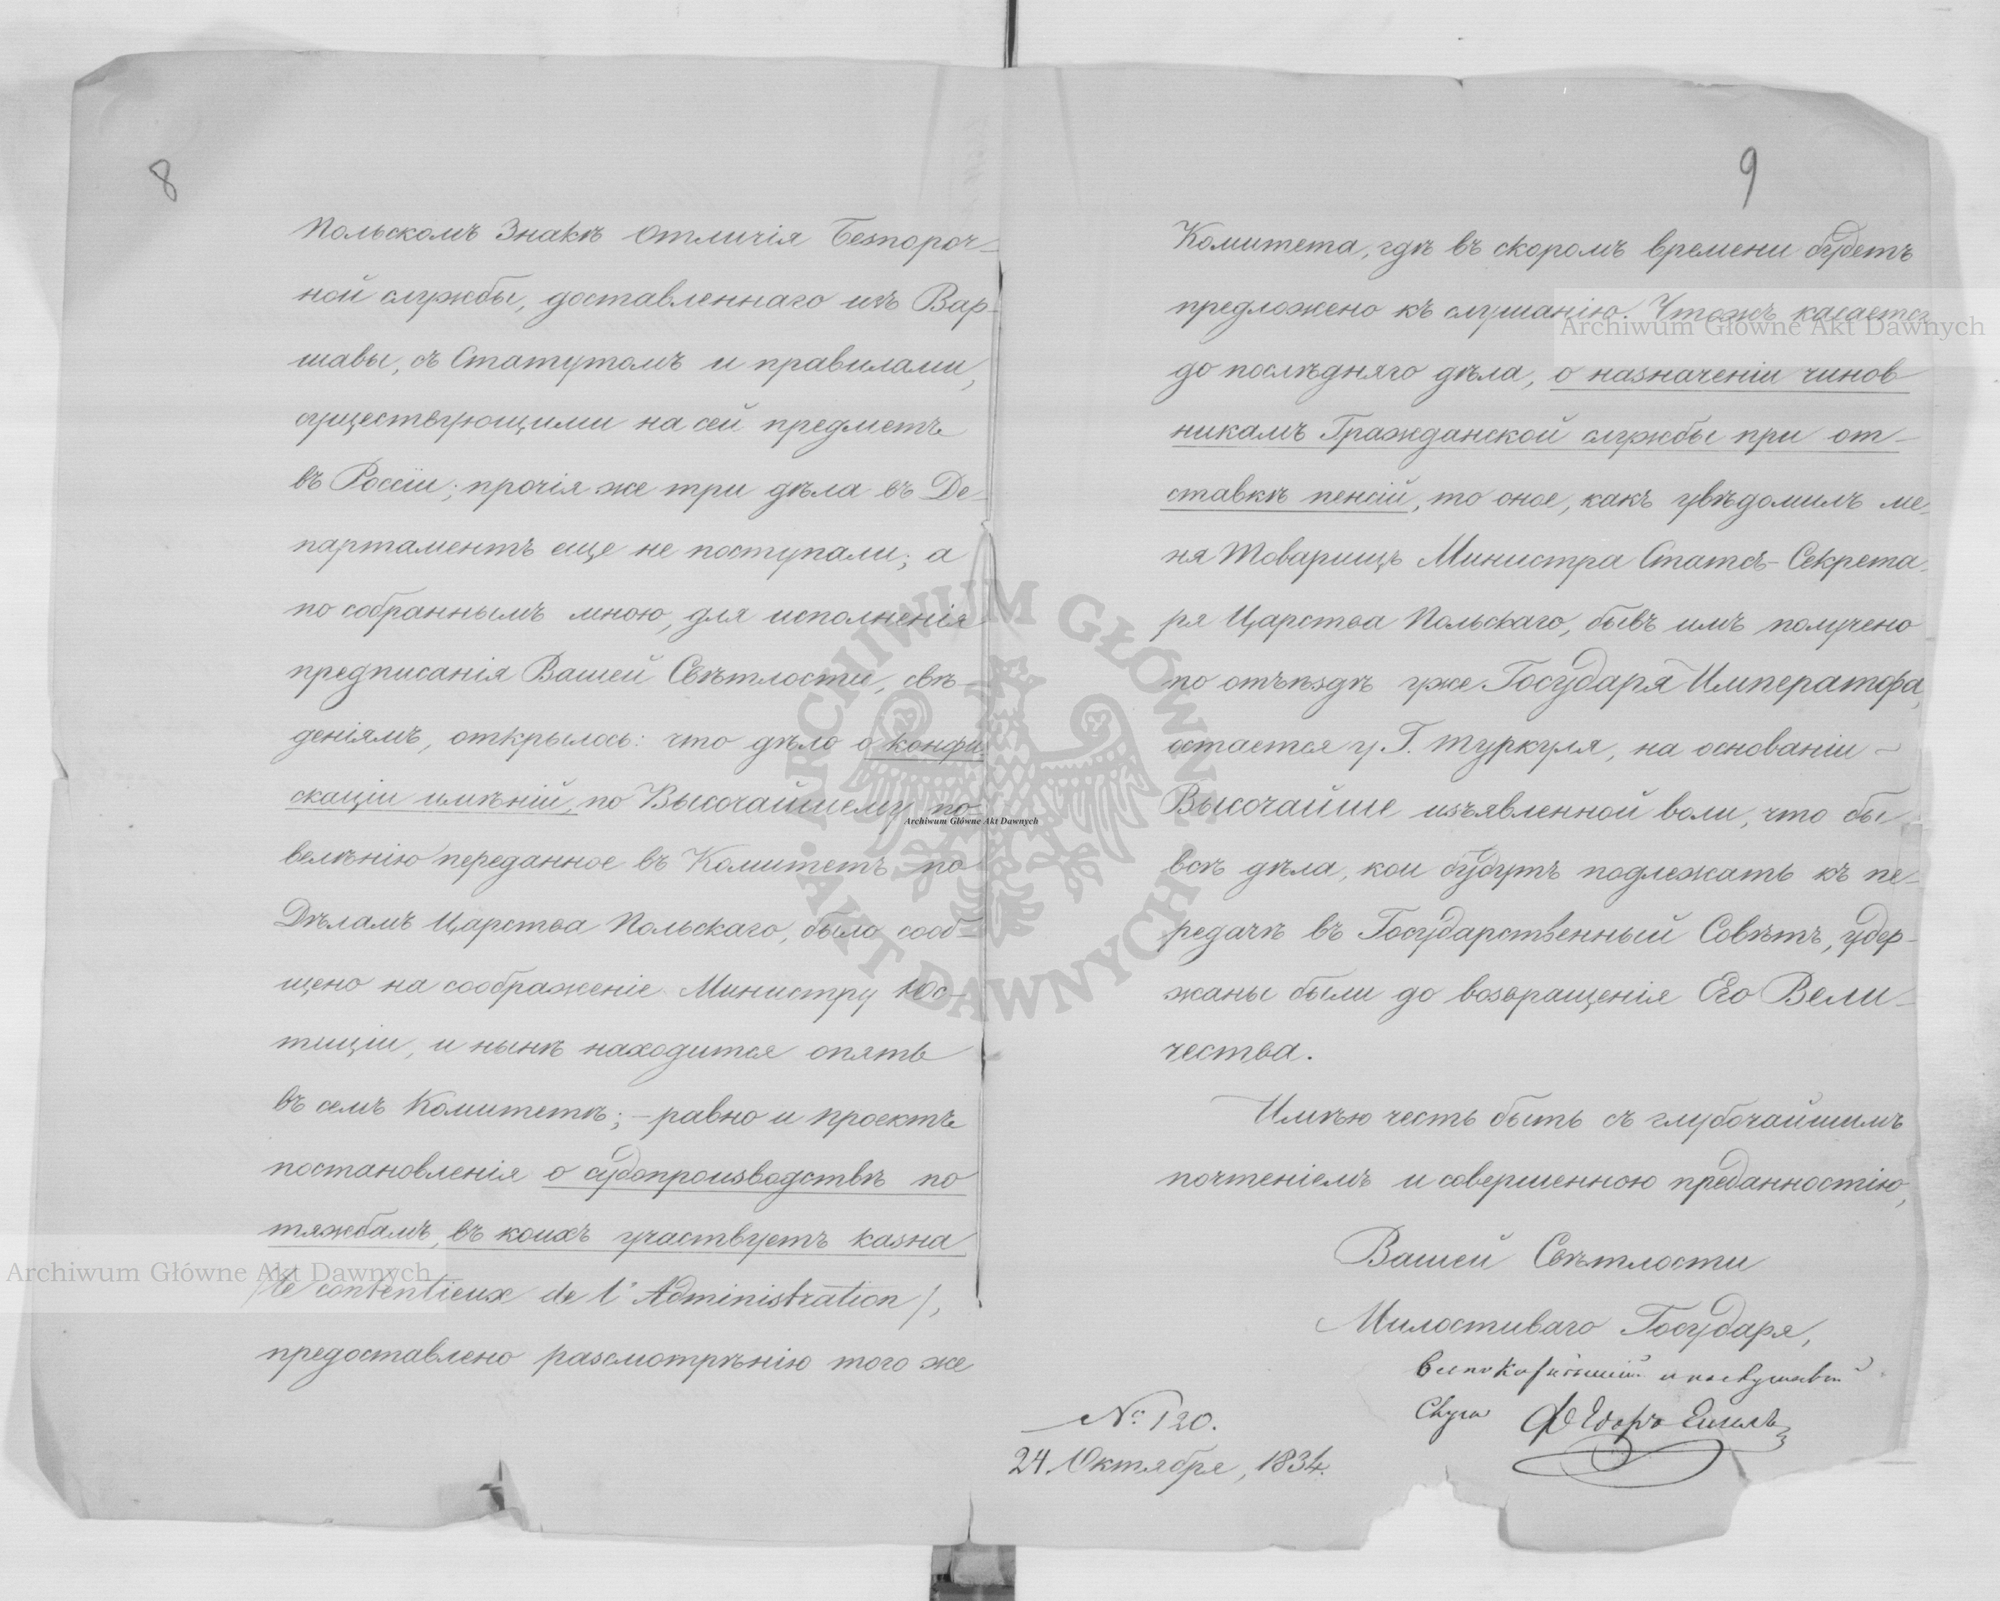 8
Польскомъ Знакѣ отличія Безпороч-
ной службы, доставленнаго изъ Вар-
шавы, съ Статутомъ и правилами,
существующими на сей предметъ
въ Россіи; прочія же три дѣла въ Де-
партаментъ еще не поступали; а
по собраннымъ мною, для исполненія
предписанія Вашей Свѣтлости, свѣ-
деніямъ, открылось: что дѣло о конфи
скаціи имѣній, по Высочайшему по-
велѣнію переданное въ Комитетъ по
Дѣламъ Царства Польскаго, было сооб-
щено на соображеніе Министру Юс-
тиціи, и нынѣ находится опять
въ семъ Комитетѣ; - равно и проектъ
постановленія о судопроизводствѣ по
тяжбамъ, въ коихъ участвуетъ казна
/le contentieux de l'Administration/,
предоставлено разсмотрѣнію того же
9
Комитета, гдѣ въ скоромъ времени будетъ
предложено къ слушанію. Чтожъ касается
до послѣдняго дѣла, о назначеніи чинов
никамъ Гражданской службы при от-
ставкѣ пенсій, то оное, какъ увѣдомилъ ме-
ня Товарищъ Министра Статсъ-Секрета-
ря Царства Польскаго, бывъ имъ получено
по отъѣздѣ уже Государя Императора,
остается у Г. Туркуля, на основаніи -
Высочайше изъявленной воли, что бы
всѣ дѣла, кои будутъ подлежать къ пе-
редачѣ въ Государственный Совѣтъ, удер-
жаны были до возвращенія Его Вели-
чества.
Имѣю честь быть съ глубочайшимъ
почтеніемъ и совершенною преданностію,
Вашей Свѣтлости
Милостиваго Государя,
всепокорнѣйшій и послушный
слуга Ѳедоръ Енгель
№ 120.
24 Октября, 1834.
Archiwum Główne Akt Dawnych
Archiwum Główne Akt Dawnych
Archiwum Główne Akt Dawnych
ARCHIWUM GŁÓWNE AKT DAWNYCH